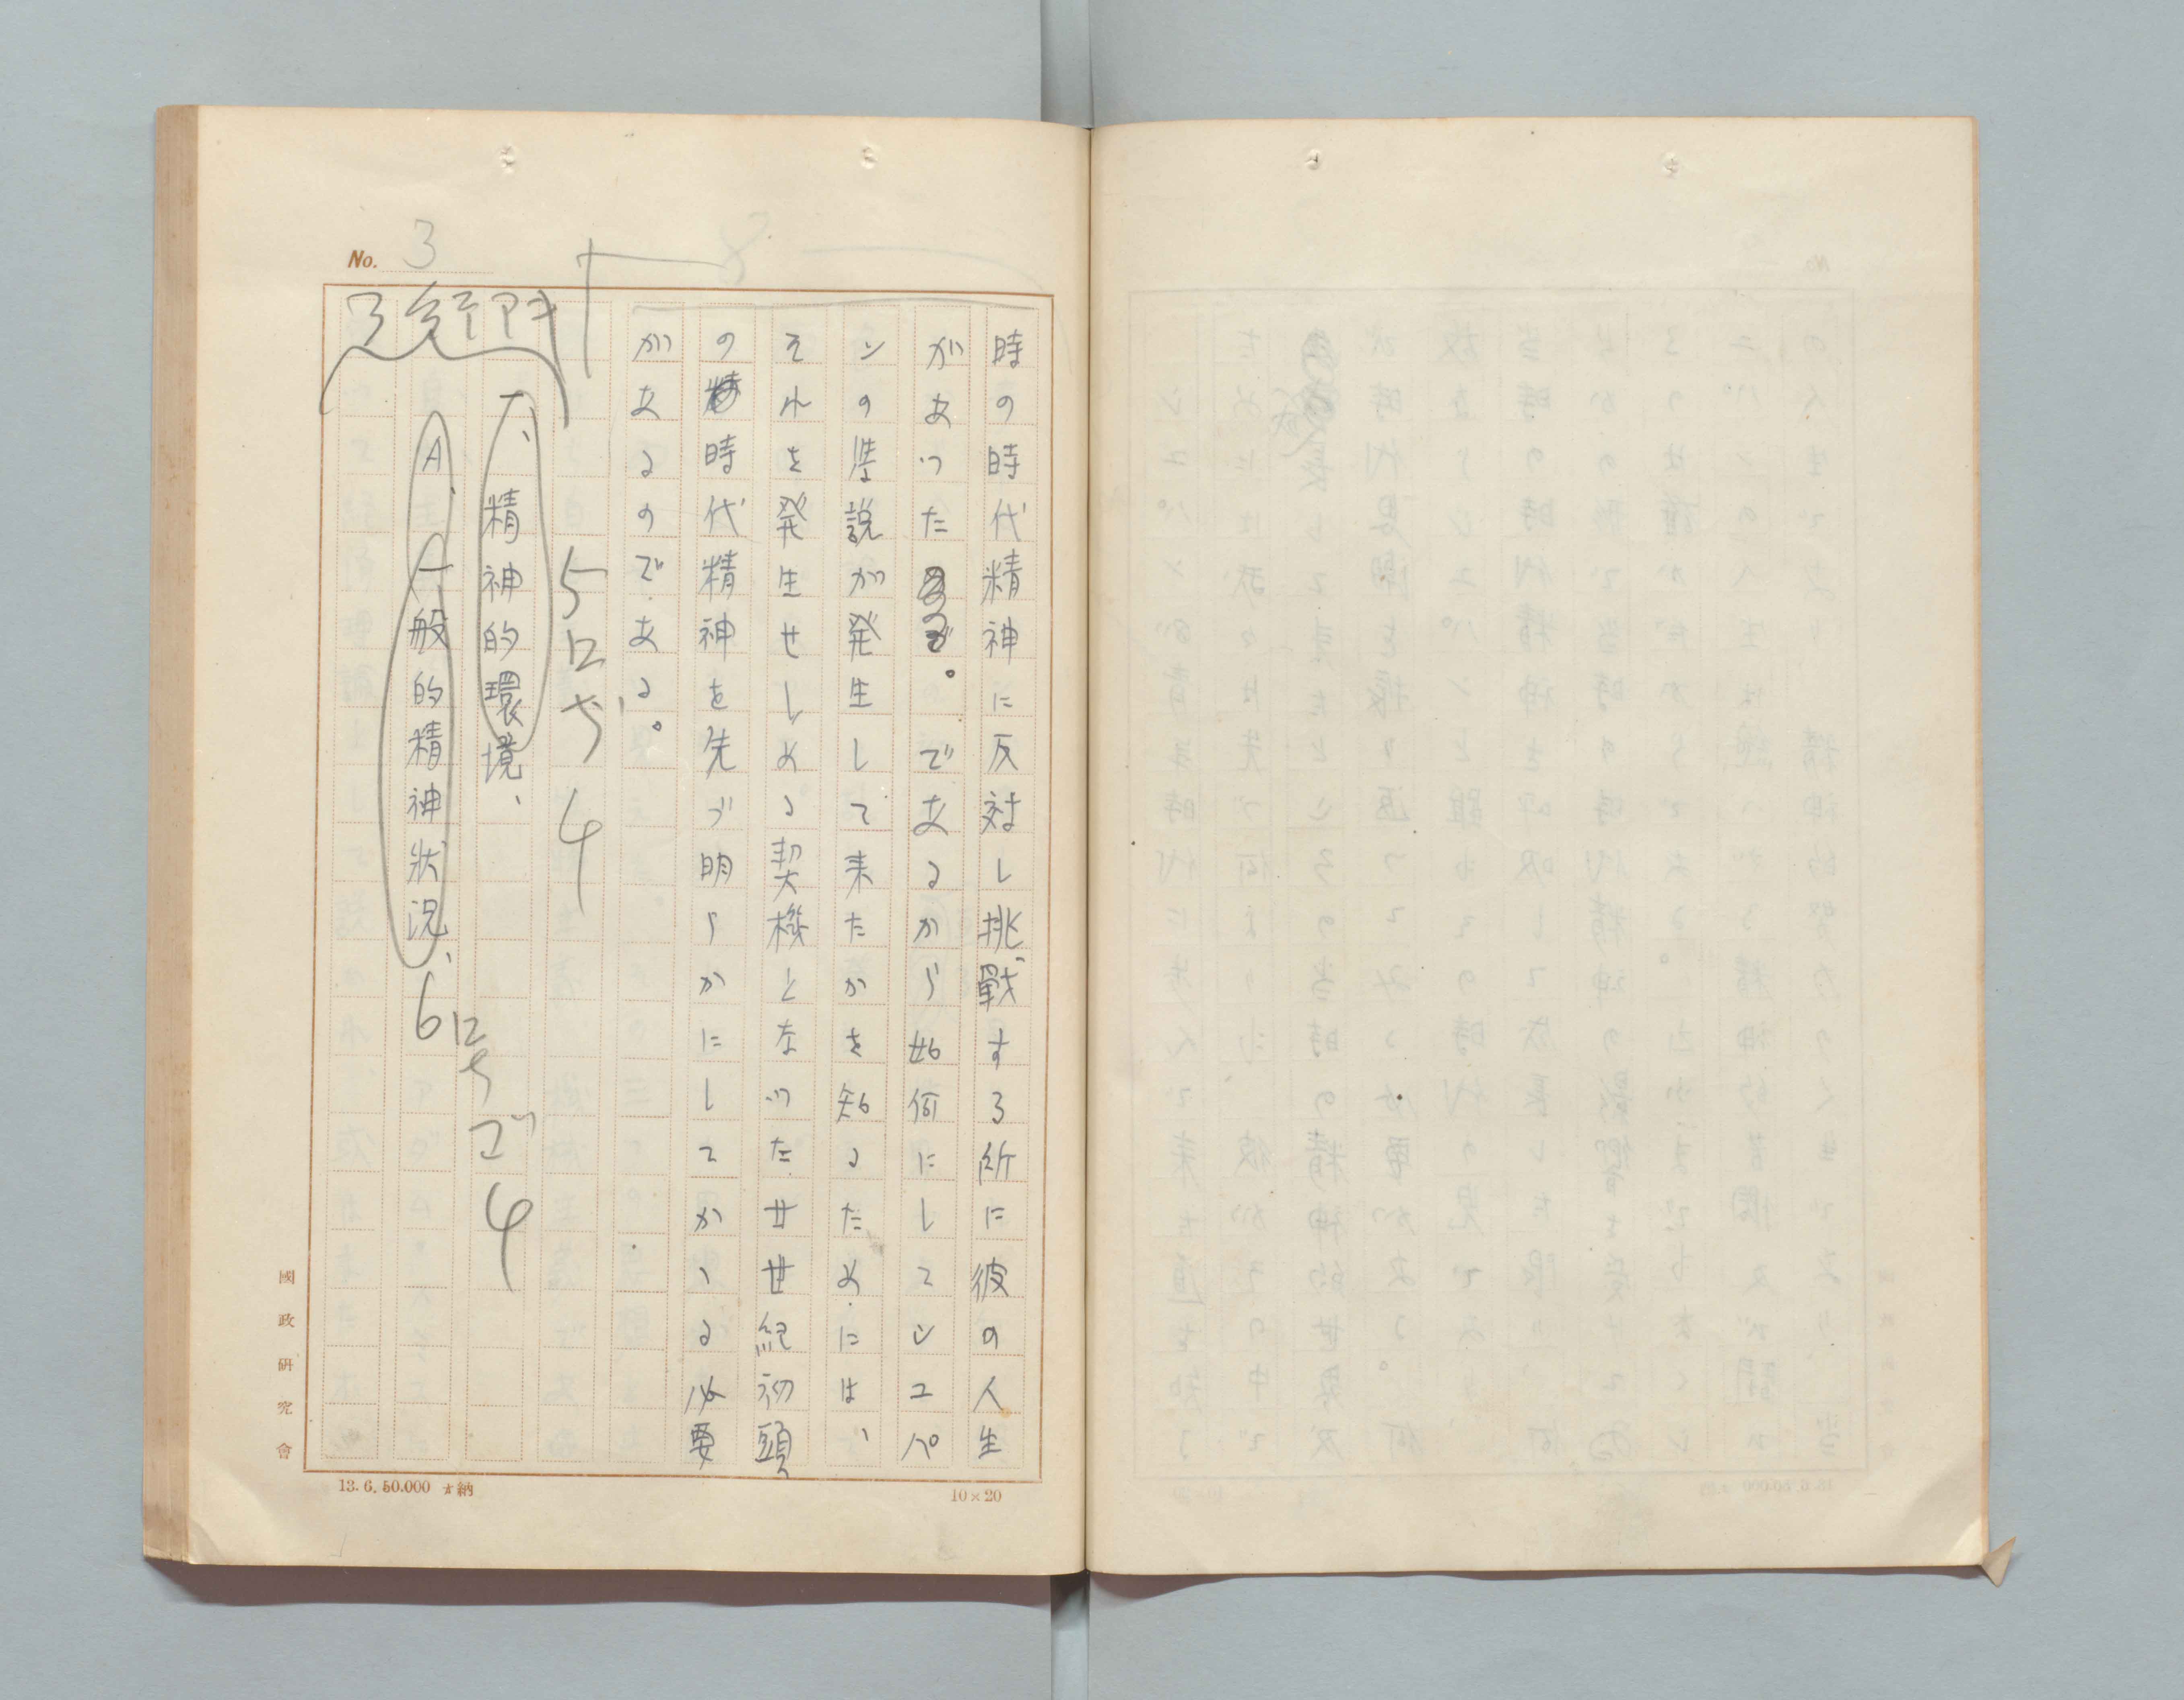 No. 3
8
3行アキ
時の時代精神に反対し挑戦する所に彼の人生
があつた。であるから如何にしてシユペ
ンの学説が発生して来たかを知るためには、
それを発生せしめる契機となつた廿世紀初頭
の時代精神を先づ明らかにしてかゝる必要
があるのである。
5ロ 4
一、精神的環境、
A、一般的精神状況、
6ロ ゴ 4
國政研究會
13. 6. 50.000 才納
10×20